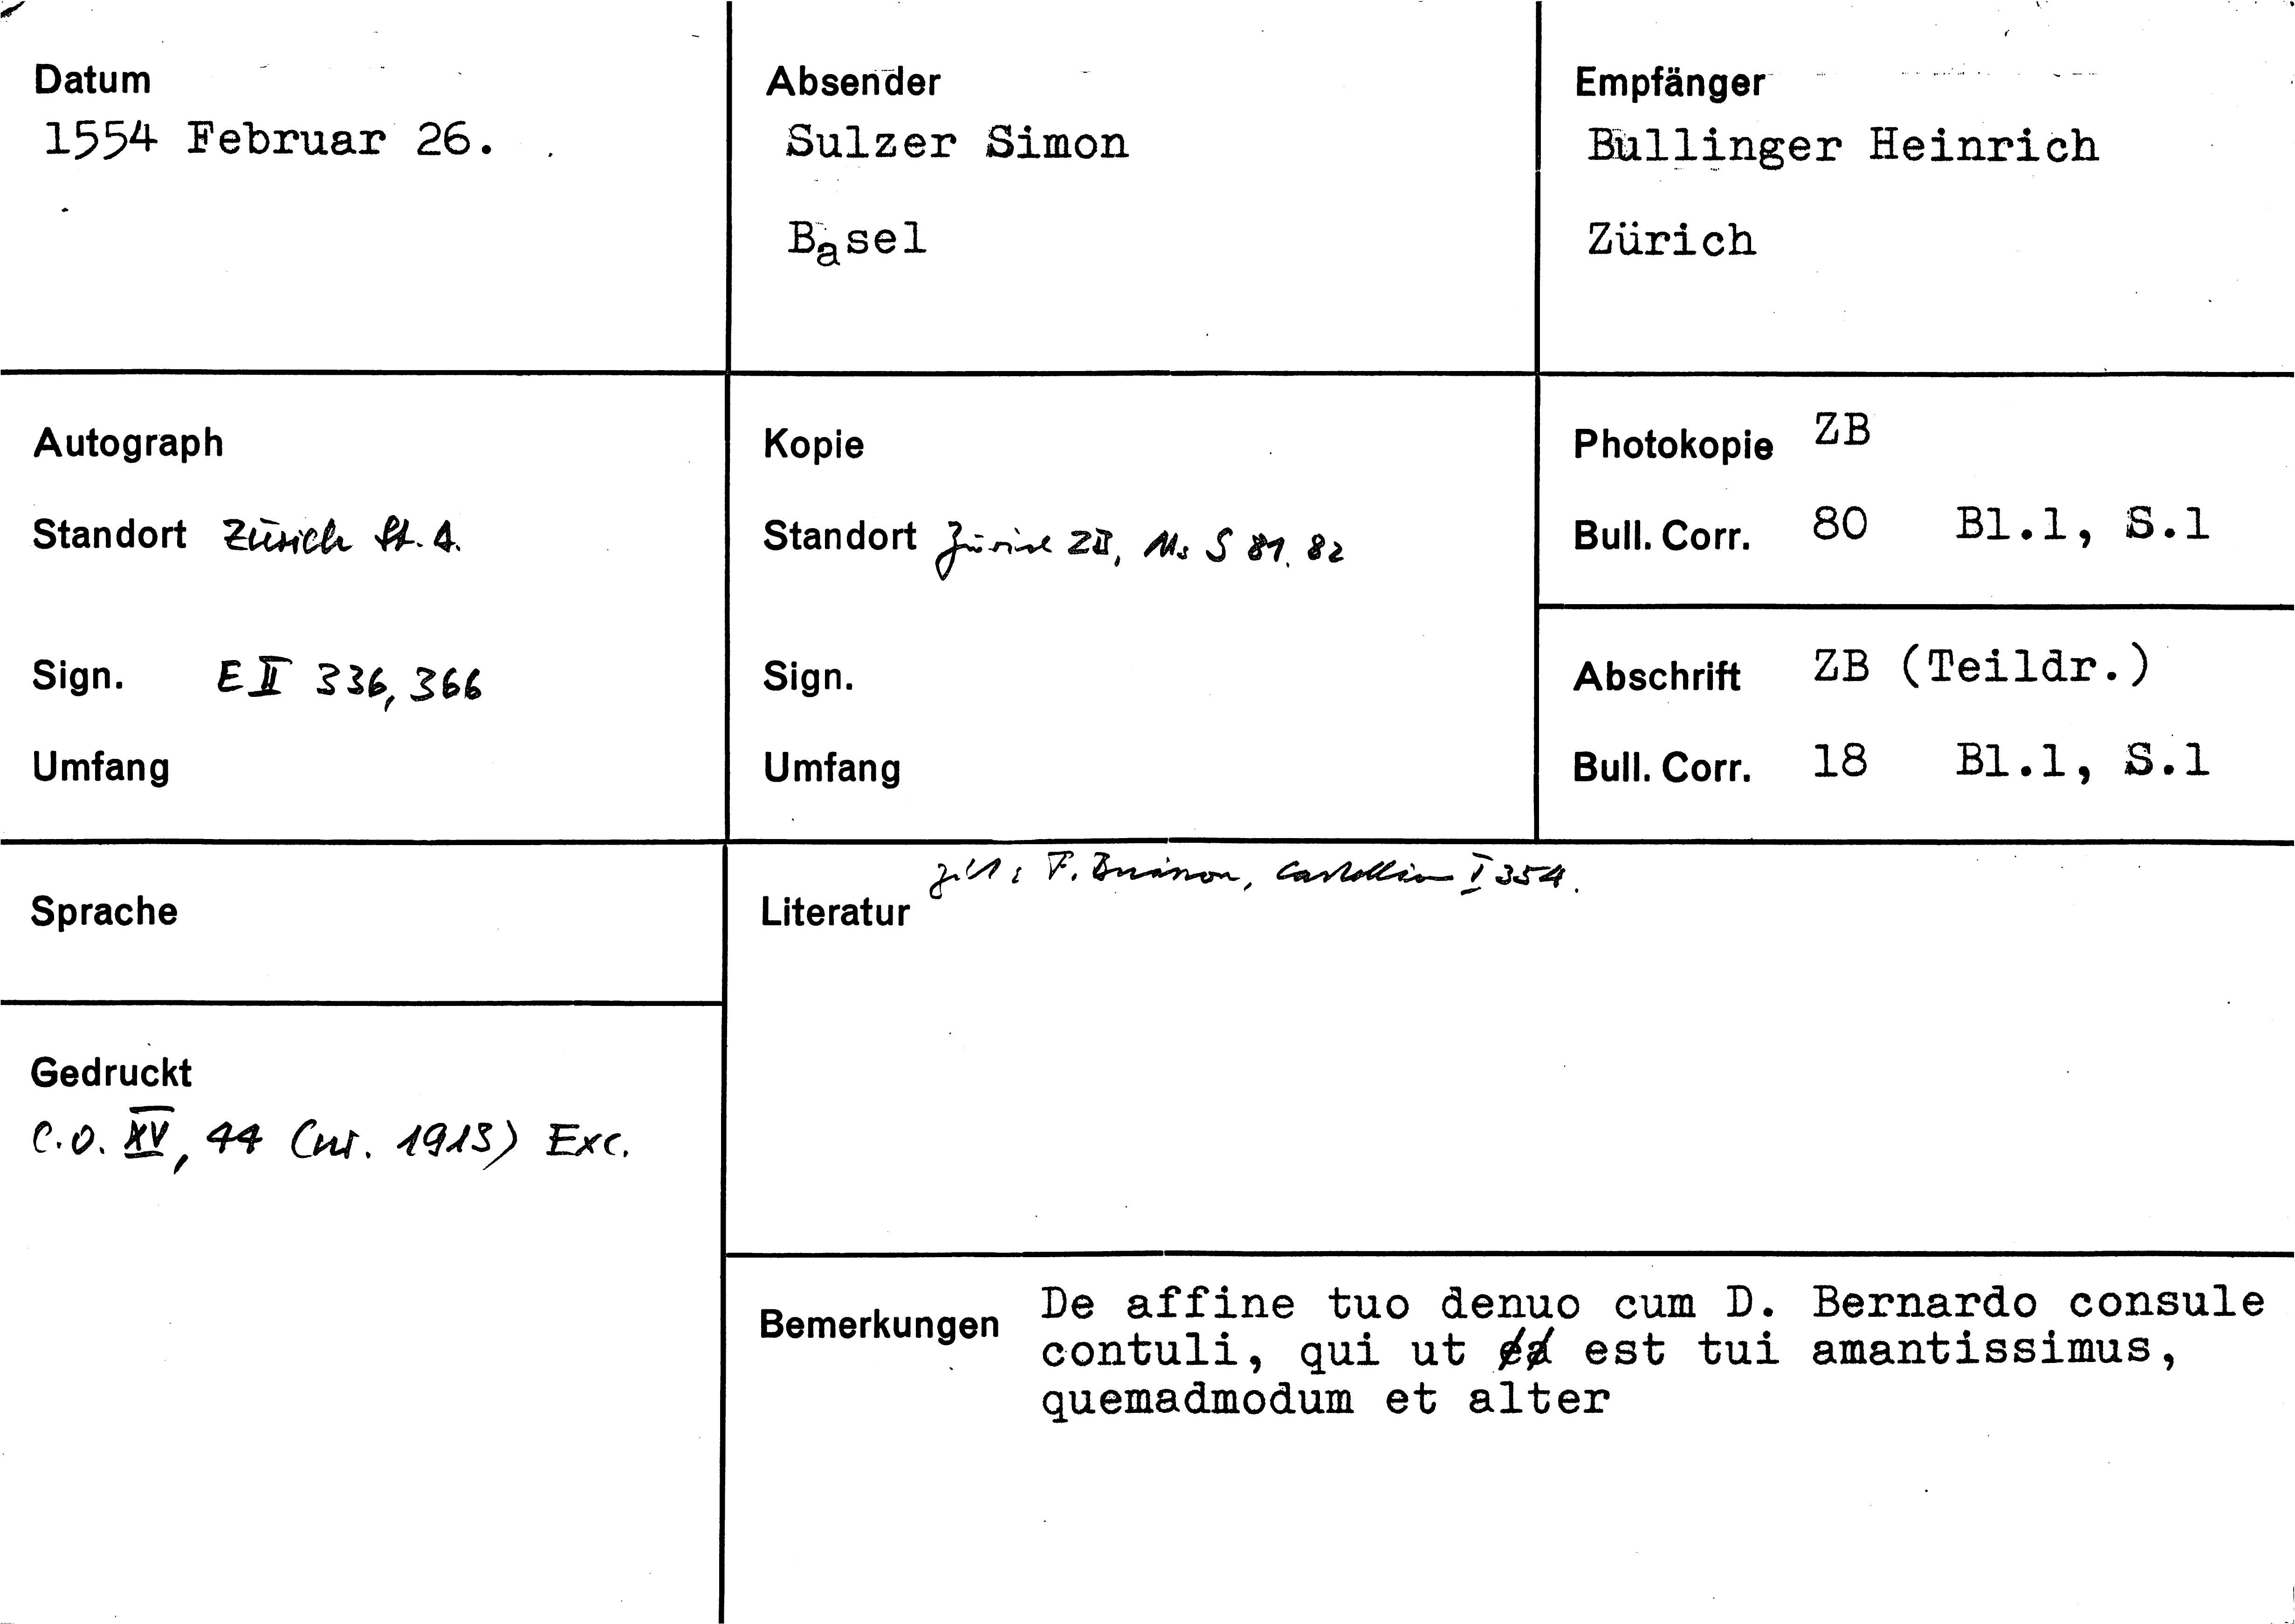 Datum
1554 Februar 26.
Absender
Sulzer Simon
Basel
Empfänger
Bullinger Heinrich
Zürich
Autograph
Standort Zürich St. A.
Sign. E II 336, 366
Umfang
Kopie
Standort Zürich ZB, Ms S 81. 82
Sign.
Umfang
Photokopie ZB
Bull. Corr. 80 Bl.1, S.1
Abschrift ZB (Teildr.)
Bull. Corr. 18 Bl.1, S.1
Sprache
Gedruckt
C.O. XV, 44 (nr. 1913) Exc.
Literatur
zit: F. Buisson, Castellion I 354.
Bemerkungen
De affine tuo denuo cum D. Bernardo consule
contuli, qui ut est tui amantissimus,
quemadmodum et alter